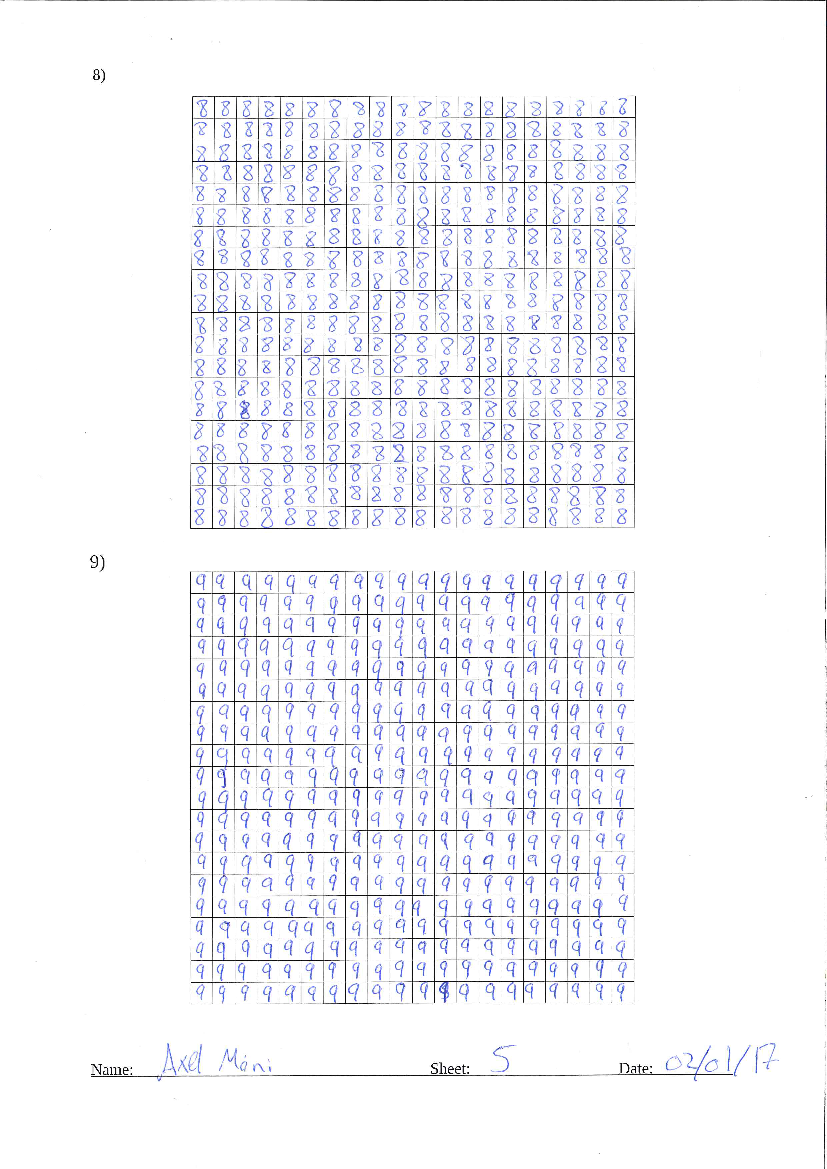 8)
8 8 8 8 8 8 8 8 8 8 8 8 8 8 8 8 8 8 8 8
8 8 8 8 8 8 8 8 8 8 8 8 8 8 8 8 8 8 8 8
8 8 8 8 8 8 8 8 8 8 8 8 8 8 8 8 8 8 8 8
8 8 8 8 8 8 8 8 8 8 8 8 8 8 8 8 8 8 8 8
8 8 8 8 8 8 8 8 8 8 8 8 8 8 8 8 8 8 8 8
8 8 8 8 8 8 8 8 8 8 8 8 8 8 8 8 8 8 8 8
8 8 8 8 8 8 8 8 8 8 8 8 8 8 8 8 8 8 8 8
8 8 8 8 8 8 8 8 8 8 8 8 8 8 8 8 8 8 8 8
8 8 8 8 8 8 8 8 8 8 8 8 8 8 8 8 8 8 8 8
8 8 8 8 8 8 8 8 8 8 8 8 8 8 8 8 8 8 8 8
8 8 8 8 8 8 8 8 8 8 8 8 8 8 8 8 8 8 8 8
8 8 8 8 8 8 8 8 8 8 8 8 8 8 8 8 8 8 8 8
8 8 8 8 8 8 8 8 8 8 8 8 8 8 8 8 8 8 8 8
8 8 8 8 8 8 8 8 8 8 8 8 8 8 8 8 8 8 8 8
8 8 8 8 8 8 8 8 8 8 8 8 8 8 8 8 8 8 8 8
8 8 8 8 8 8 8 8 8 8 8 8 8 8 8 8 8 8 8 8
8 8 8 8 8 8 8 8 8 8 8 8 8 8 8 8 8 8 8 8
8 8 8 8 8 8 8 8 8 8 8 8 8 8 8 8 8 8 8 8
8 8 8 8 8 8 8 8 8 8 8 8 8 8 8 8 8 8 8 8
8 8 8 8 8 8 8 8 8 8 8 8 8 8 8 8 8 8 8 8
9)
9 9 9 9 9 9 9 9 9 9 9 9 9 9 9 9 9 9 9 9
9 9 9 9 9 9 9 9 9 9 9 9 9 9 9 9 9 9 9 9
9 9 9 9 9 9 9 9 9 9 9 9 9 9 9 9 9 9 9 9
9 9 9 9 9 9 9 9 9 9 9 9 9 9 9 9 9 9 9 9
9 9 9 9 9 9 9 9 9 9 9 9 9 9 9 9 9 9 9 9
9 9 9 9 9 9 9 9 9 9 9 9 9 9 9 9 9 9 9 9
9 9 9 9 9 9 9 9 9 9 9 9 9 9 9 9 9 9 9 9
9 9 9 9 9 9 9 9 9 9 9 9 9 9 9 9 9 9 9 9
9 9 9 9 9 9 9 9 9 9 9 9 9 9 9 9 9 9 9 9
9 9 9 9 9 9 9 9 9 9 9 9 9 9 9 9 9 9 9 9
9 9 9 9 9 9 9 9 9 9 9 9 9 9 9 9 9 9 9 9
9 9 9 9 9 9 9 9 9 9 9 9 9 9 9 9 9 9 9 9
9 9 9 9 9 9 9 9 9 9 9 9 9 9 9 9 9 9 9 9
9 9 9 9 9 9 9 9 9 9 9 9 9 9 9 9 9 9 9 9
9 9 9 9 9 9 9 9 9 9 9 9 9 9 9 9 9 9 9 9
9 9 9 9 9 9 9 9 9 9 9 9 9 9 9 9 9 9 9 9
9 9 9 9 9 9 9 9 9 9 9 9 9 9 9 9 9 9 9 9
9 9 9 9 9 9 9 9 9 9 9 9 9 9 9 9 9 9 9 9
9 9 9 9 9 9 9 9 9 9 9 9 9 9 9 9 9 9 9 9
9 9 9 9 9 9 9 9 9 9 9 9 9 9 9 9 9 9 9 9
Name: Axel Máni Sheet: 5 Date: 02/01/17